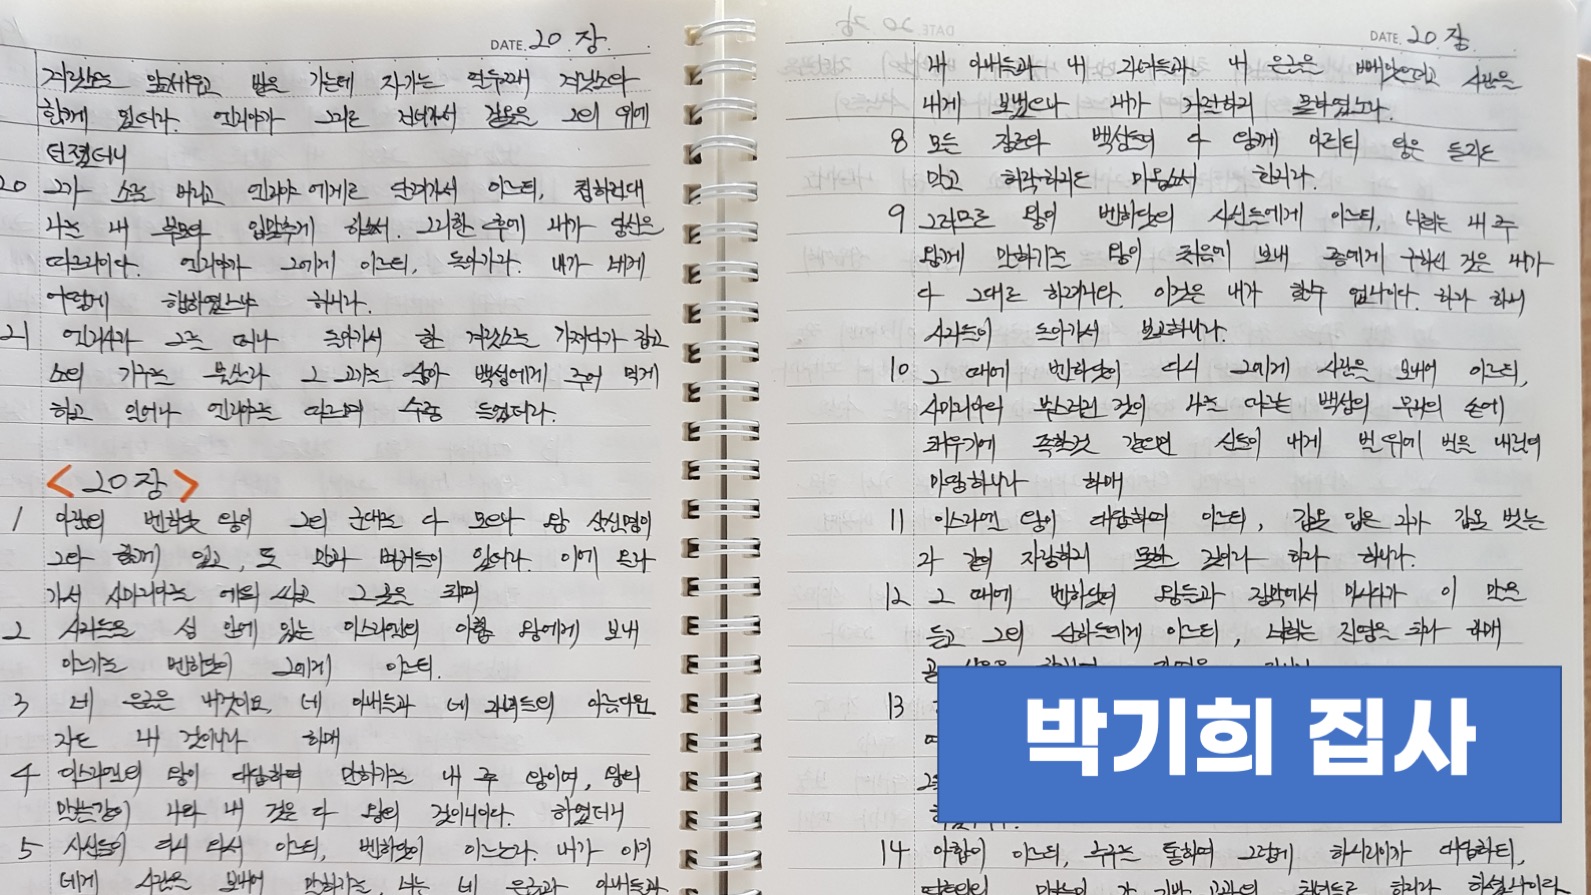 DATE. 20. 장.
겨릿소를 앞세우고 밭을 가는데 자기는 열두째 겨릿소와
함께 있더라. 엘리야가 그리로 건너가서 겉옷을 그의 위에
던졌더니
20 그가 소를 버리고 엘리야에게로 달려가서 이르되, 청하건대
나를 내 부모와 입맞추게 하소서. 그리한 후에 내가 당신을
따르리이다. 엘리야가 그에게 이르되, 돌아가라. 내가 네게
어떻게 행하였느냐 하니라.
21 엘리사가 그를 떠나 돌아가서 한 겨릿소를 가져다가 잡고
소의 기구를 불살라 그 고기를 삶아 백성에게 주어 먹게
하고 일어나 엘리야를 따르며 수종 들었더라.
< 20 장 >
1 아람의 벤하닷 왕이 그의 군대를 다 모으니 왕 삼십이명이
그와 함께 있고, 또 말과 병거들이 있더라. 이에 올라
가서 사마리아를 에워싸고 그 곳을 치며
2 사자들을 성 안에 있는 이스라엘의 아합 왕에게 보내
이르기를 벤하닷이 그에게 이르되.
3 네 은금은 내것이요, 네 아내들과 네 자녀들의 아름다운
자도 내 것이니라 하매
4 이스라엘의 왕이 대답하여 말하기를 내 주 왕이여, 왕의
말씀같이 나와 내 것은 다 왕의 것이니이다. 하였더니
5 사신들이 다시 와서 이르되, 벤하닷이 이르노라. 내가 이미
네게 사람을 보내어 말하기를, 너는 네 은금과 아내들과
DATE. 20. 장
내 아내들과 내 자녀들과 내 은금을 빼앗으려고 사람을
내게 보냈으나 내가 거절하지 못하였노라.
8 모든 장로와 백성들이 다 왕께 아뢰되 왕은 듣지도
말고 허락하지도 마옵소서 한지라.
9 그러므로 왕이 벤하닷의 사신들에게 이르되, 너희는 내 주
왕께 말하기를 왕이 처음에 보내 종에게 구하신 것은 내가
다 그대로 하려니와. 이것은 내가 할수 없나이다. 하라 하니
사자들이 돌아가서 보고하니라.
10 그 때에 벤하닷이 다시 그에게 사람을 보내어 이르되,
사마리아의 부스러진 것이 나를 따르는 백성의 무리의 손에
채우기에 족할것 같으면 신들이 내게 벌 위에 벌을 내림이
마땅하니라 하매
11 이스라엘 왕이 대답하여 이르되, 갑옷 입은 자가 갑옷 벗는
자 같이 자랑하지 못할 것이라 하라 하니라.
12 그 때에 벤하닷이 왕들과 장막에서 마시다가 이 말을
듣고 그의 신하들에게 이르되, 너희는 진영을 치라 하매
13
박기희 집사
14 아합이 이르되, 누구를 통하여 그렇게 하시리이까 대답하되,